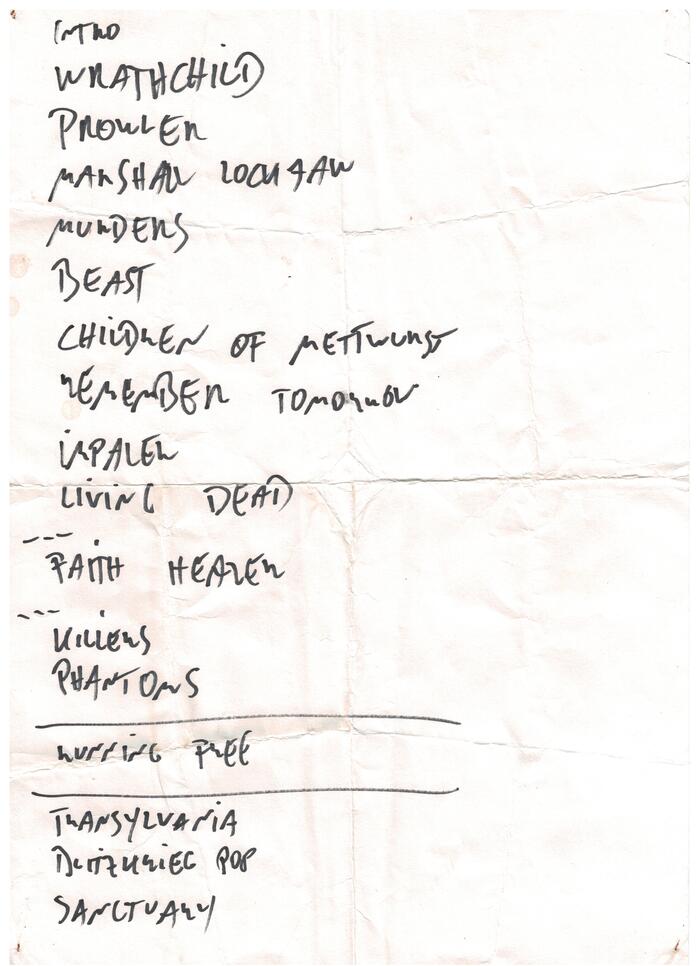 INTRO
WRATHCHILD
PROWLER
MARSHALL LOCKJAW
MURDERS
BEAST
CHILDREN OF METTWURST
REMEMBER TOMORROW
IMPALER
LIVING DEAD
---
FAITH HEALER
---
KILLERS
PHANTOMS
RUNNING FREE
TRANSYLVANIA
BLITZKRIEG POP
SANCTUARY